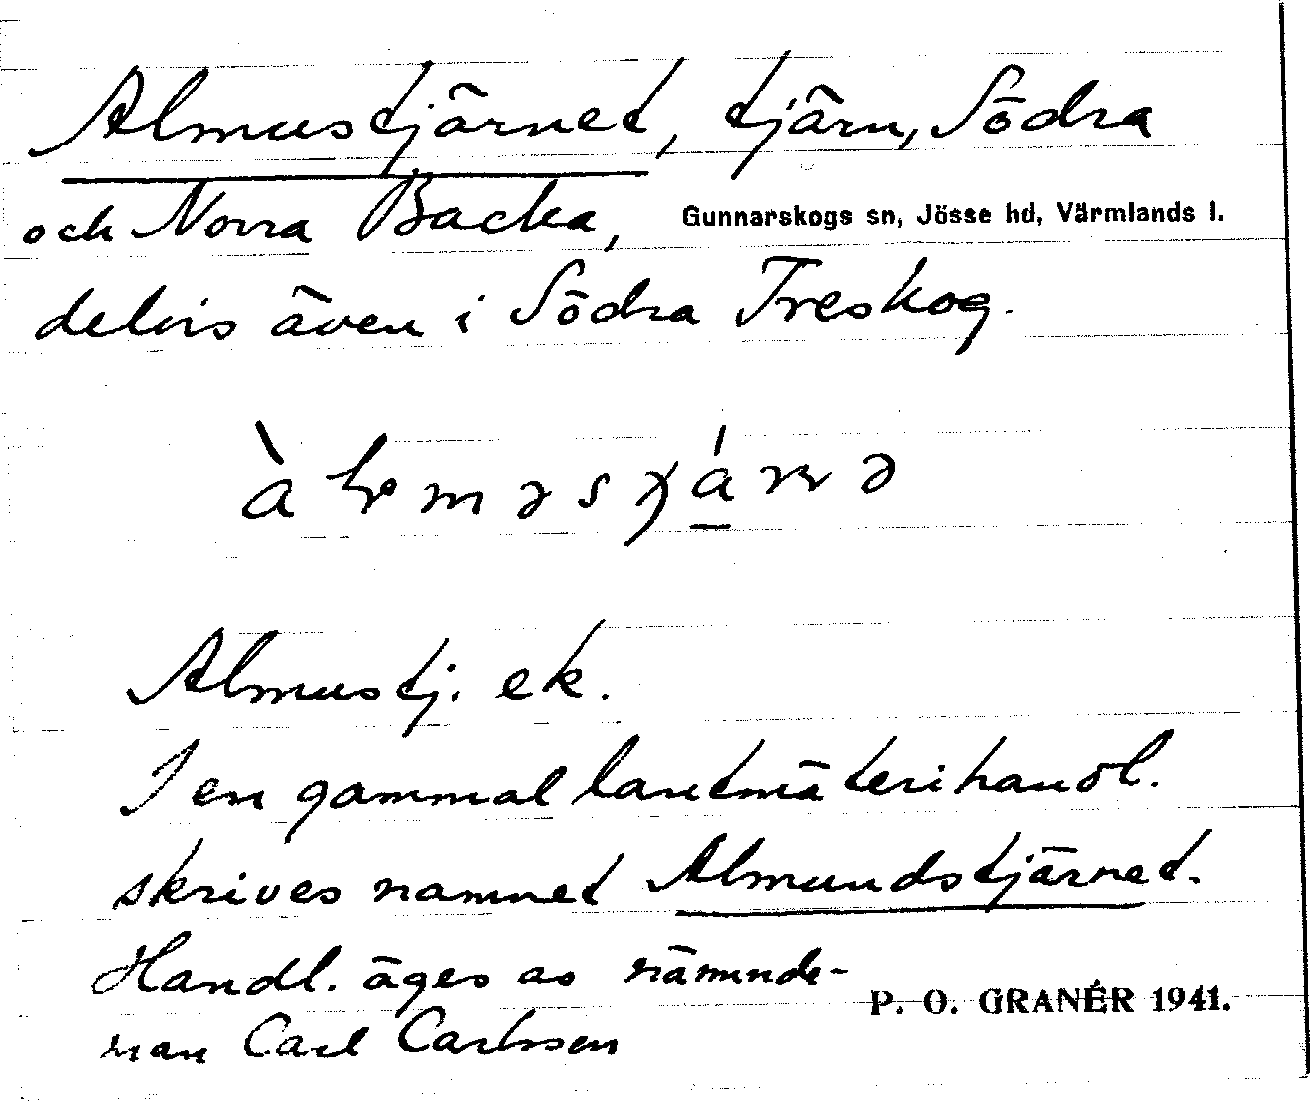 Almustjärnet, tjärn, Södra
och Norra Backa, Gunnarskogs sn, Jösse hd, Värmlands l.
delvis även i Södra Treskog.
Almustj. ek.
I en gammal lantmäterihandl.
skrives namnet Almundstjärnet.
Handl. äges av nämnde-
man Carl Carlsson
P. O. GRANÉR 1941.